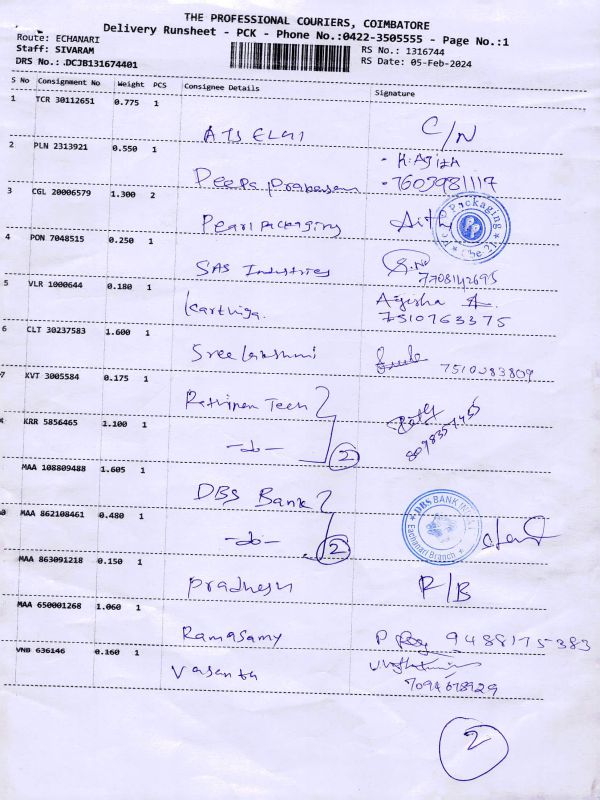 THE PROFESSIONAL COURIERS, COIMBATORE
Delivery Runsheet - PCK - Phone No.:0422-3505555 - Page No.:1
Route: ECHANARI
Staff: SIVARAM
DRS No.: DCJB131674401
RS No.: 1316744
RS Date: 05-Feb-2024
S No Consignment No Weight PCS Consignee Details Signature
1 TCR 30112651 0.775 1
C/N
2 PLN 2313921 0.550 1
7603981117
3 CGL 20006579 1.300 2
Pearl packaging
4 PON 7048515 0.250 1
SAS Industries
7708142695
5 VLR 1000644 0.180 1
Karthiga.
7510763375
6 CLT 30237583 1.600 1
Sree lakshmi
7 KVT 3005584 0.175 1
Tech
KRR 5856465 1.100 1
2
MAA 108809488 1.605 1
DBS Bank
MAA 862108461 0.480 1
2
DBS BANK
Eachanari Branch
MAA 863091218 0.150 1
R/B
MAA 650001268 1.060 1
Ramasamy 9488175383
VNB 636146 0.160 1
Vasanta
7094678929
2